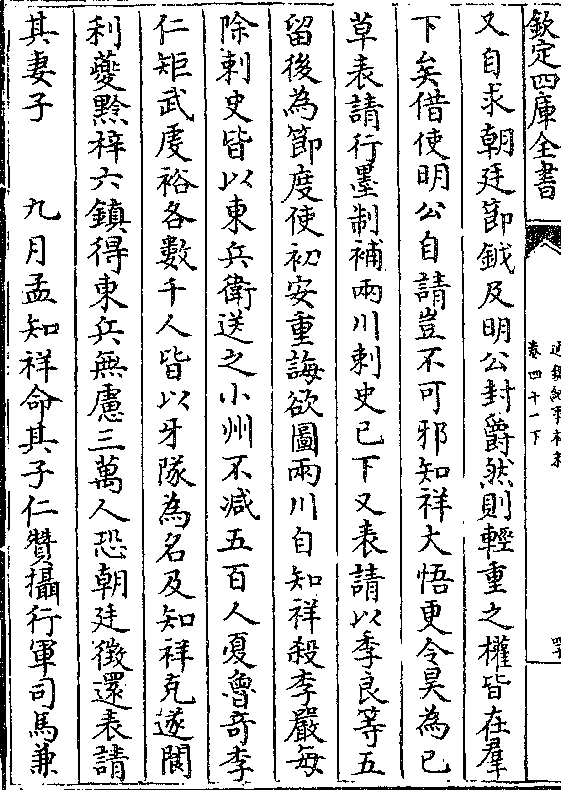 欽定四庫全書
通鑑紀事本末
卷四十一下
又自求朝廷節鉞及明公封爵然則輕重之權皆在羣
下矣借使明公自請豈不可邪知祥大悟更令昊為已
草表請行墨制補兩川刺史已下又表請以季良等五
留後為節度使初安重誨欲圖兩川自知祥殺李嚴每
除刺史皆以東兵衛送之小州不减五百人夏魯奇李
仁矩武虔裕各數千人皆以牙隊為名及知祥克遂閬
利夔黔梓六鎮得東兵無慮三萬人恐朝廷徵還表請
其妻子　九月孟知祥命其子仁贊攝行軍司馬兼